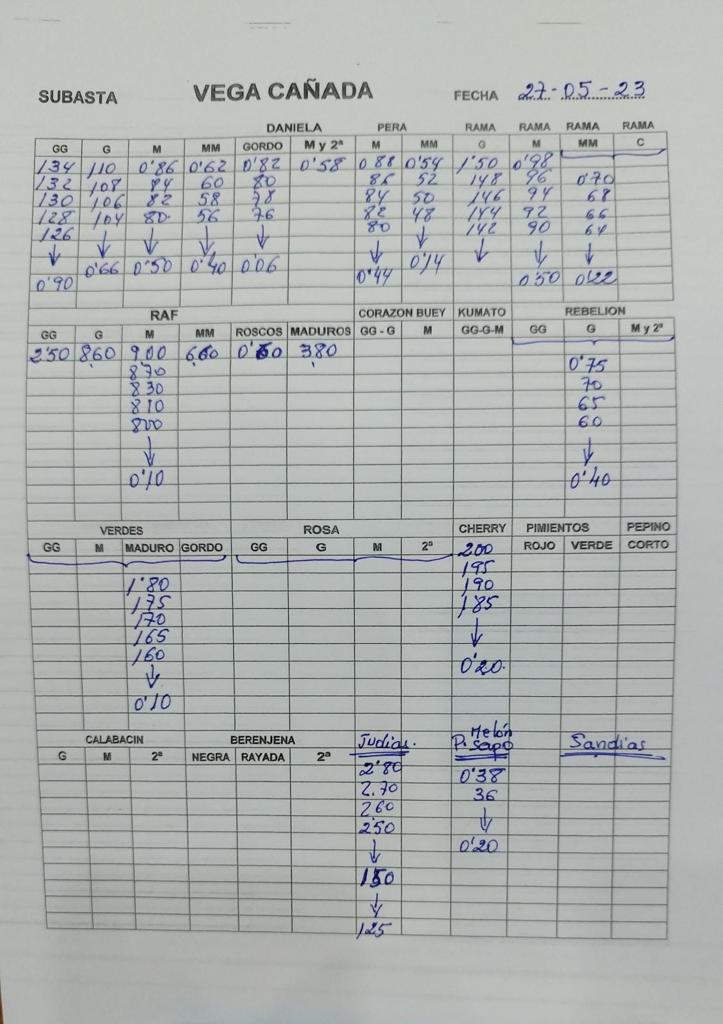 SUBASTA VEGA CAÑADA FECHA 27-05-23
DANIELA PERA RAMA RAMA RAMA RAMA
GG G M MM GORDO M y 2ª M MM G M MM C
134 110 0'86 0'62 0'82 0'58 0'88 0'54 1'50 0'98
132 108 84 60 80 86 52 148 96 0'70
130 106 82 58 78 84 50 146 94 68
128 104 80 56 76 82 48 144 92 66
126 ↓ ↓ ↓ ↓ 80 ↓ 142 90 64
↓ 0'66 0'50 0'40 0'06 ↓ 0'14 ↓ ↓ ↓
0'90 0'44 0'50 0'22
RAF CORAZON BUEY KUMATO REBELION
GG G M MM ROSCOS MADUROS GG - G M GG-G-M GG G M y 2ª
2'50 8,60 9,00 6,60 0'60 3,80
870 0'75
830 70
810 65
800 60
↓ ↓
0'10 0'40
VERDES ROSA CHERRY PIMIENTOS PEPINO
GG M MADURO GORDO GG G M 2ª 200 ROJO VERDE CORTO
195
1'80 190
175 1'85
170 ↓
165
160 0'20
↓
0'10
CALABACIN BERENJENA Judias. Melón P. Sapo Sandias
G M 2ª NEGRA RAYADA 2ª
2'80 0'38
2.70 36
260 ↓
250 0'20
↓
150
↓
125